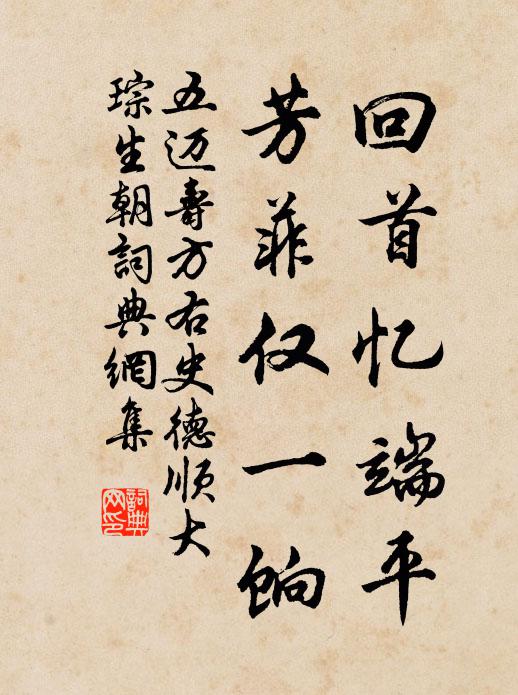 回首忆端平
芳菲仅一饷
五迈寿方右史德顺大
琮生朝詞典網集
詞典
网印